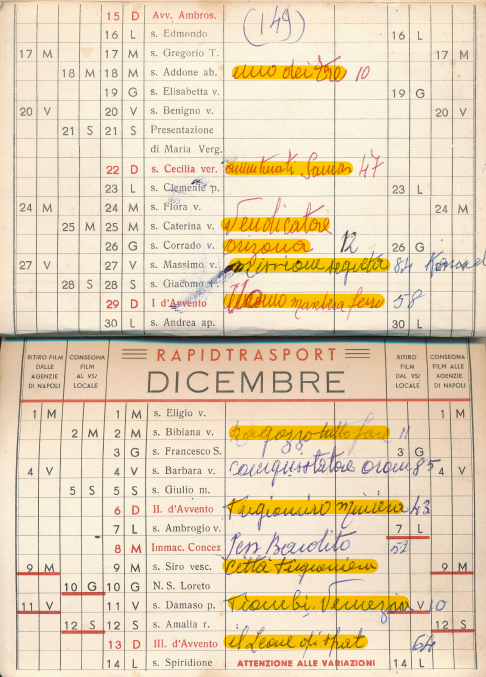 15 D Avv. Ambros.
16 L s. Edmondo (149) 16 L
17 M 17 M s. Gregorio T. 17 M
18 M 18 M s. Addone ab. uno dei tre 10
19 G s. Elisabetta v. 19 G
20 V 20 V s. Benigno v. 20 V
21 S 21 S Presentazione
di Maria Verg.
22 D s. Cecilia ver. 47
23 L s. Clemente p. 23 L
24 M 24 M s. Flora v. 24 M
25 M 25 M s. Caterina v. Vendicatore
26 G s. Corrado v. arizona 12 26 G
27 V 27 V s. Massimo v. missione segreta 84 27 V
28 S 28 S s. Giacomo
29 D I d'Avvento Uomo maschera ferro 58
30 L s. Andrea ap. 30 L
RAPIDTRASPORT
DICEMBRE
RITIRO FILM DALLE AGENZIE DI NAPOLI
CONSEGNA FILM AL VS/ LOCALE
RITIRO FILM DAL VS/ LOCALE
CONSEGNA FILM ALLE AGENZIE DI NAPOLI
1 M 1 M s. Eligio v. 1 M
2 M 2 M s. Bibiana v. ragazzo tutto fare 11
3 G s. Francesco S. 3 G
4 V 4 V s. Barbara v. conquistatore 85 4 V
5 S 5 S s. Giulio m.
6 D II. d'Avvento Prigioniero miniera 43
7 L s. Ambrogio v. 7 L
8 M Immac. Concez Bandito 52
9 M 9 M s. Siro vesc. Città Prigioniera 9 M
10 G 10 G N. S. Loreto
11 V 11 V s. Damaso p. Piombi Venezia V 10
12 S 12 S s. Amalia r. 12 S
13 D III. d'Avvento il Leone di 64
14 L s. Spiridione ATTENZIONE ALLE VARIAZIONI 14 L